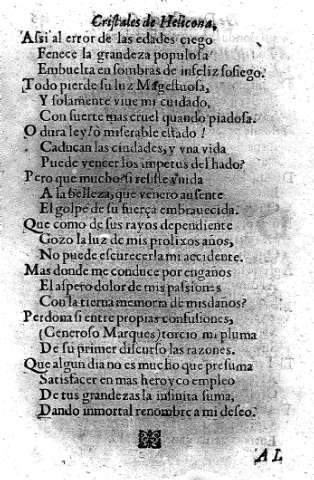 Cristales de Helicona,
Assi al error de las edades ciego
Fenece la grandeza populosa
Embuelta en sombras de infeliz sosiego.
Todo pierde su luz Magestuosa,
Y solamente viue mi cuidado,
Con suerte mas cruel quando piadosa.
O dura ley! ò miserable estado!
Caducan las ciudades, y vna vida
Puede vencer los impetus del hado?
Pero que mucho si resiste vnida
A la belleza, que venero ausente
El golpe de su fuerça embrauecida.
Que como de sus rayos dependiente
Gozo la luz de mis prolixos años,
No puede escurecerla mi accidente.
Mas donde me conduce por engaños
El aspero dolor de mis passiones
Con la tierna memoria de mis daños?
Perdona si entre propias confusiones,
(Generoso Marques) torcio mi pluma
De su primer discurso las razones.
Que algun dia no es mucho que presuma
Satisfacer en mas heroyco empleo
De tus grandezas la infinita suma,
Dando inmortal renombre a mi deseo.
AL